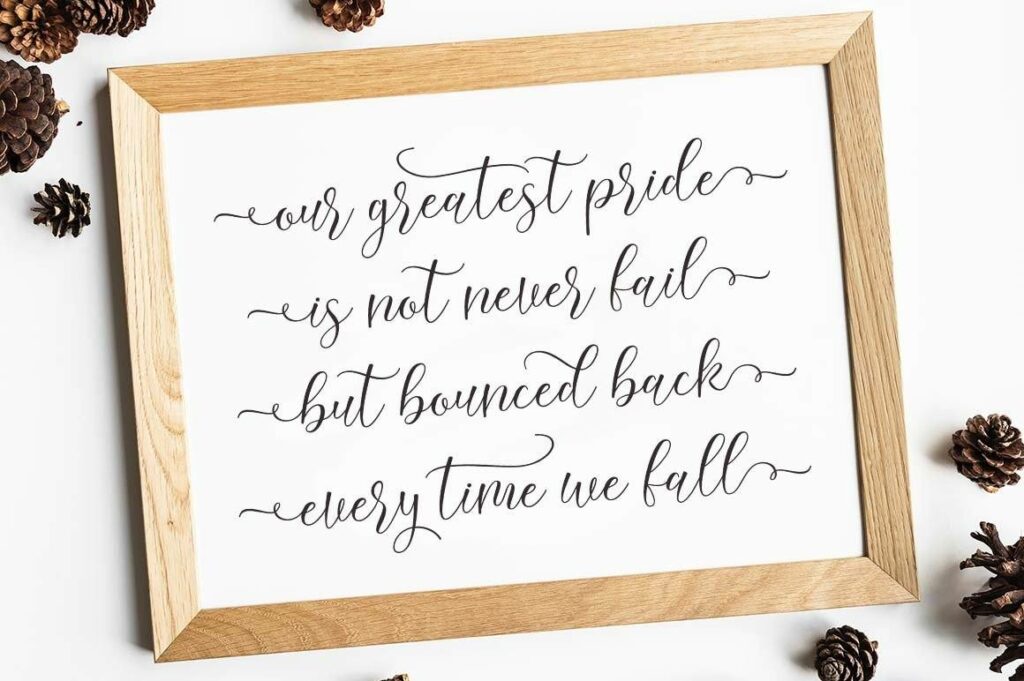 our greatest pride
is not never fail
but bounced back
every time we fall